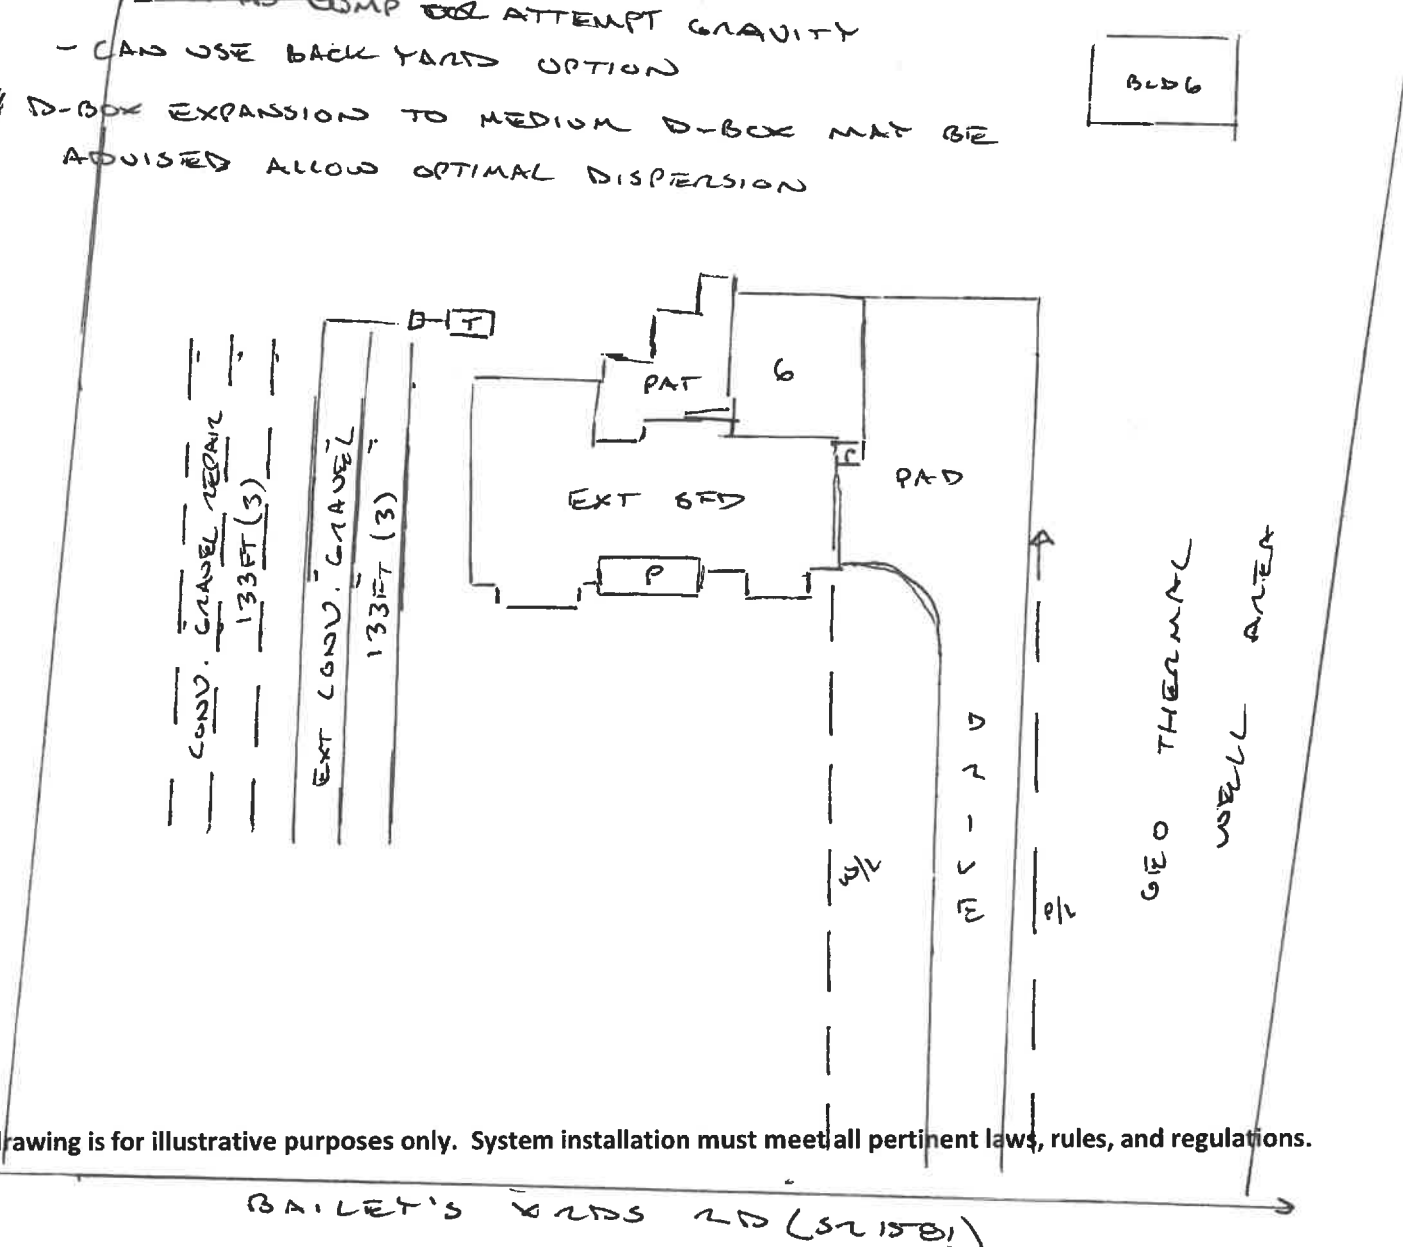 PUMP OR ATTEMPT GRAVITY
- CAN USE BACK YARD OPTION
D-BOX EXPANSION TO MEDIUM D-BOX MAY BE
ADVISED ALLOW OPTIMAL DISPERSION
BLDG
T
PAT
G
P
PAD
EXT SFD
P
CONV. GRAVEL REPAIR
133FT (3)
EXT CONV. GRAVEL
133FT (3)
DRIVE
W/L
P/L
GEO THERMAL
WELL AREA
rawing is for illustrative purposes only. System installation must meet all pertinent laws, rules, and regulations.
BAILEY'S XRDS RD (SR 1581)